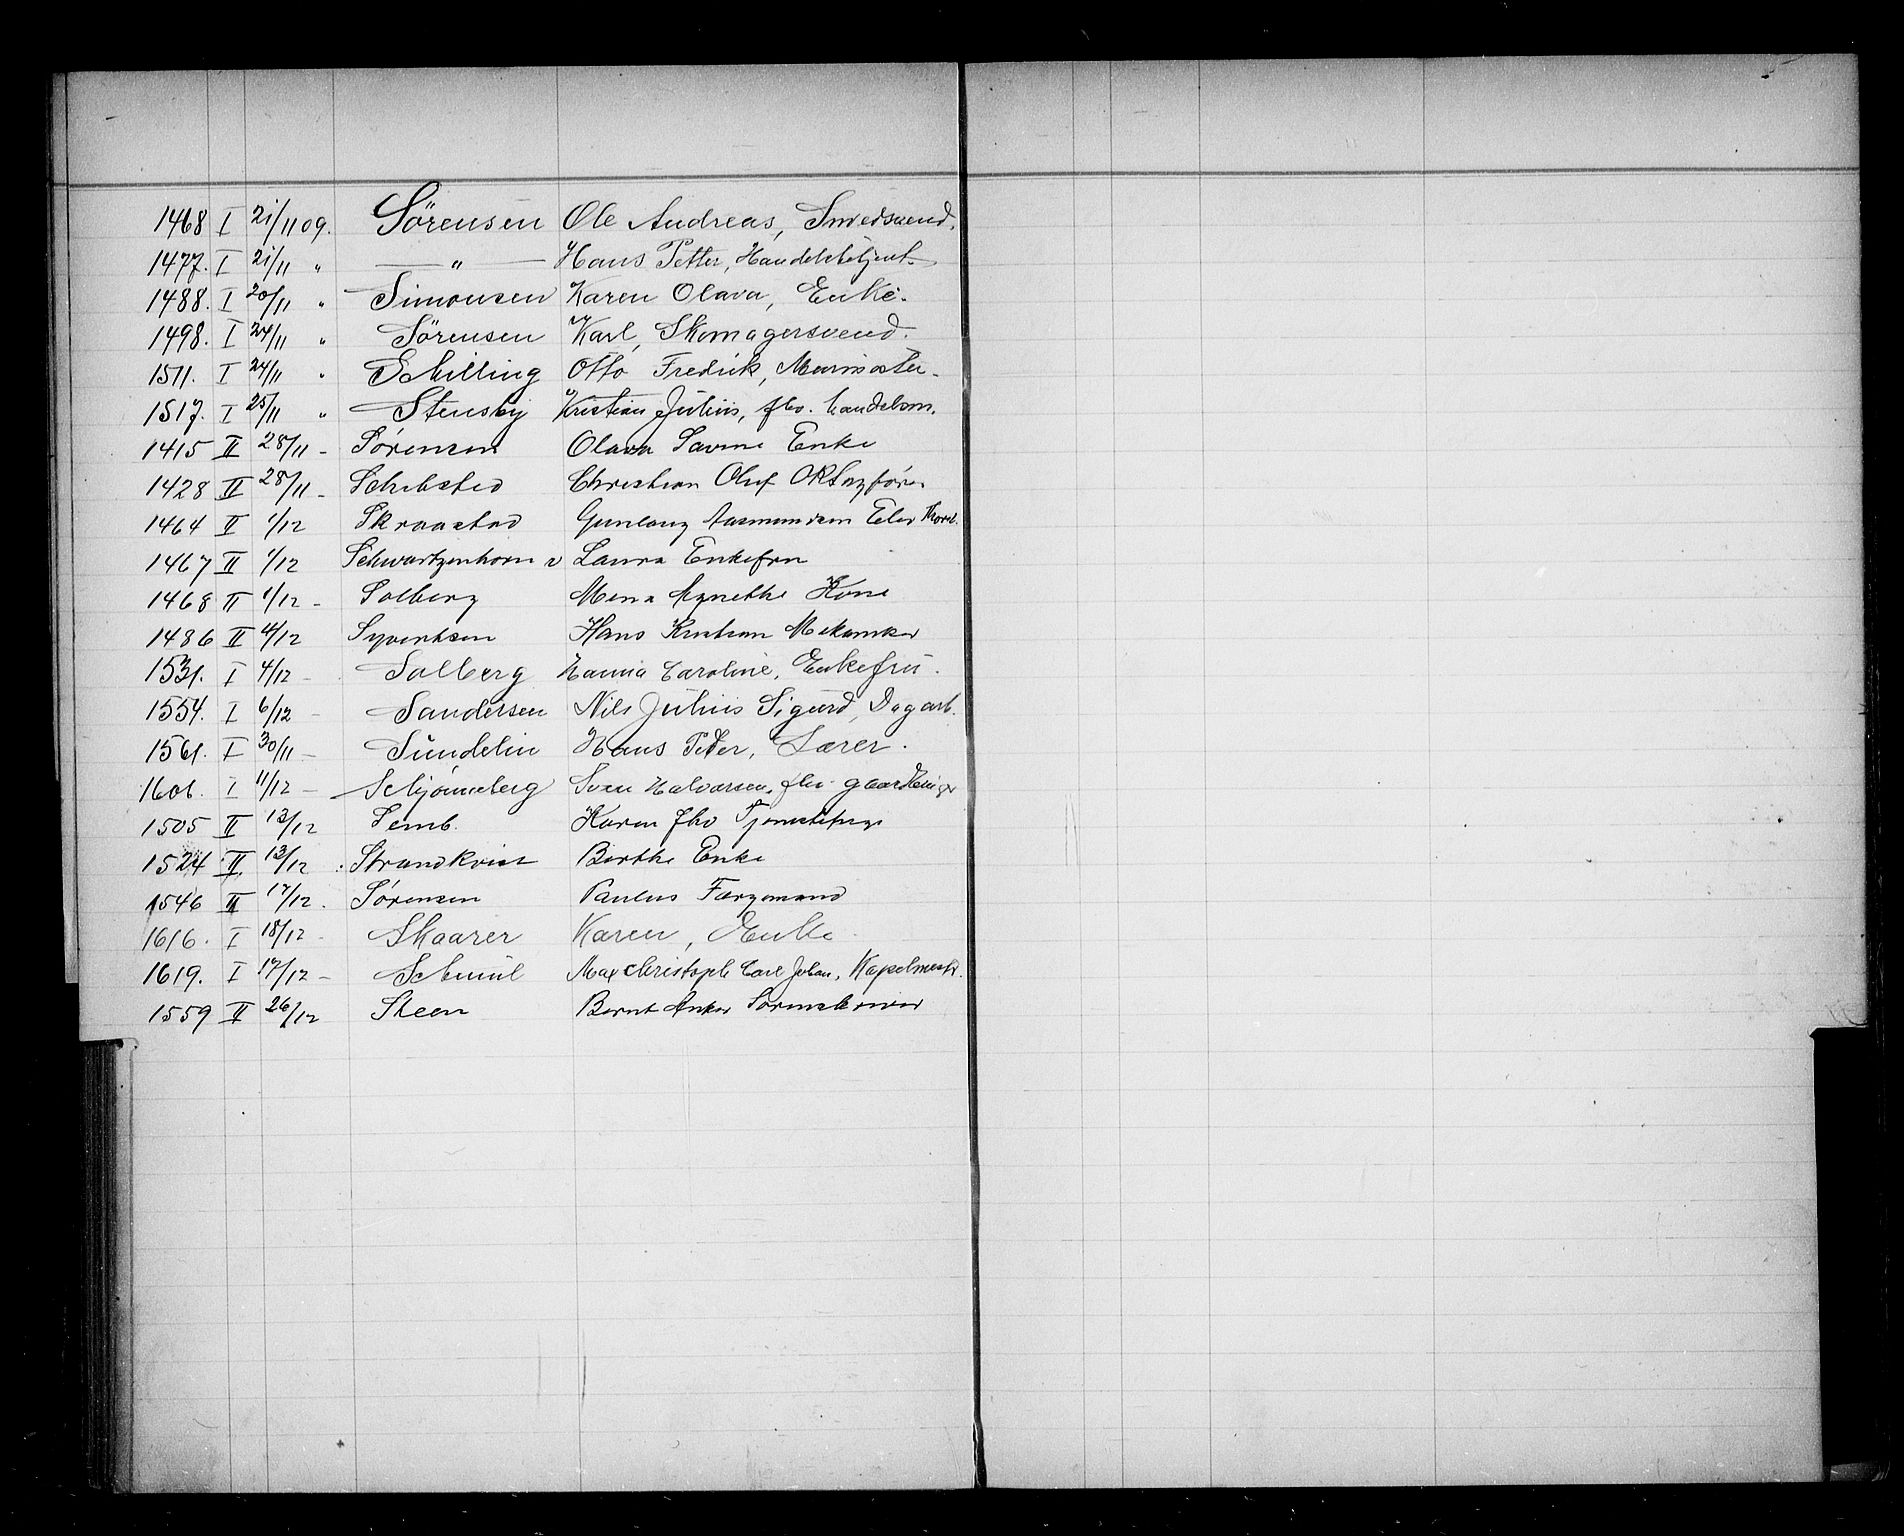 1468 I 21/11 09. Sörensen Ole Andreas, Smedsvend.
1477. I 21/11 " — " — Hans Petter, Handelsbetjent
1488. I 20/11 " Simonsen Karen Olava, Enke.
1498. I 24/11 " Sörensen Karl, Skomagersvend.
1511. I 24/11 " Schilling Otto Fredrick, Murmester.
1517. I 25/11 " Stensby Kristian Julius, fhv. handelsm.
1415 II 28/11 - Sørensen Olava Enke
1428 II 28/11 - Schibsted Christian Oluf
1464 II 1/12 Skraastad Gunlaug
1467 II 1/12 Schwartzenhorn v Laura Enkefru
1468 II 1/12 - Solberg Agnethe Kone
1486 II 4/12 Syvertsen Hans Kristian Mekaniker
1531. I 4/12 - Solberg Hanna Caroline, Enkefru.
1554. I 6/12 - Sandersen Nils Julius Sigurd, Dagarb.
1561. I 30/11 - Sundelin Hans Peter, Lærer.
1601. I 11/12 - Schjønneberg Sven Halvorsen, fhv.
1505 II 13/12 Semb. Karen fhv Tjenestepige
1524 II 13/12 Strandkvist Berthe Enke
1546 II 17/12. Sørensen Paulus Færgemand
1616. I 18/12 - Skaarer Karen, Enke.
1619. I 17/12 - Max Christoph Carl Johan, Kapelmestr.
1559 II 26/12 Steen Bernt Anker Sorenskriver